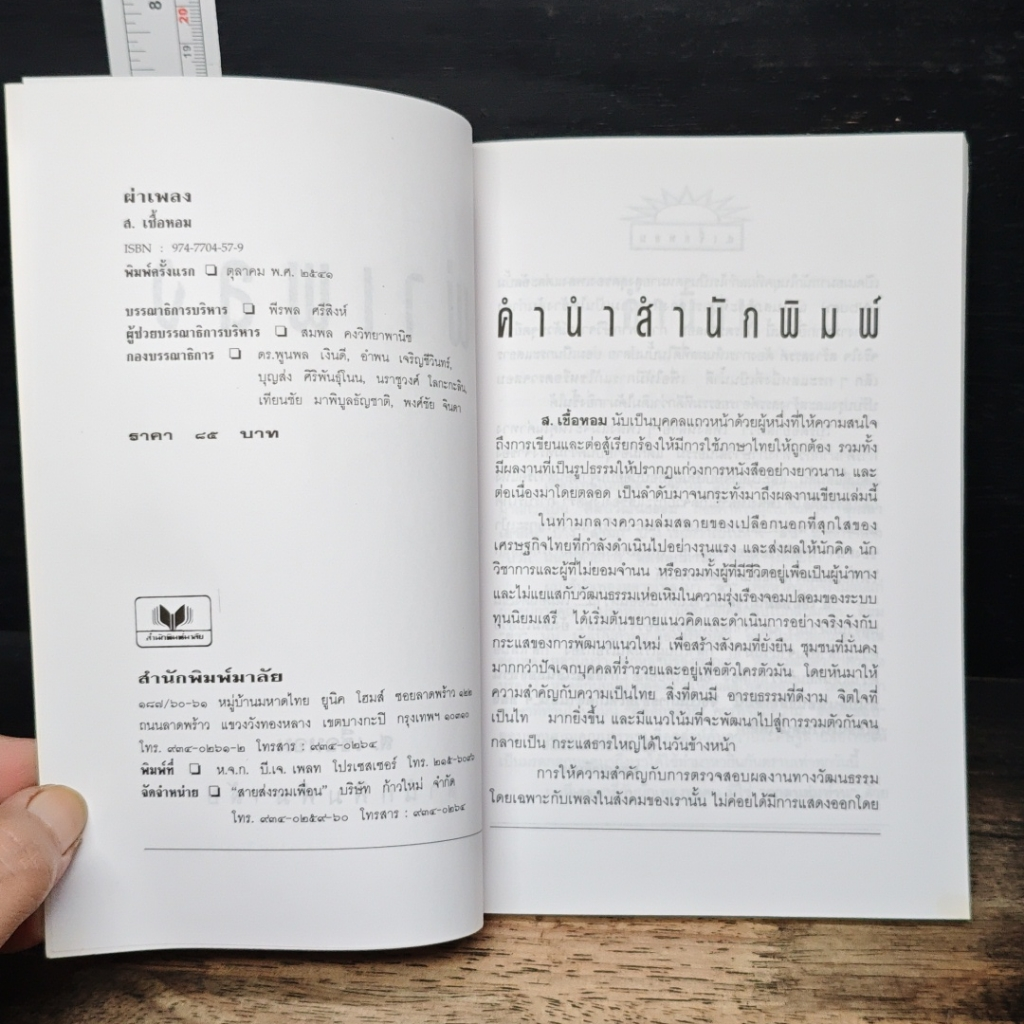 8
20
19
ผ่าเพลง
ส. เชื้อหอม
ISBN : 974-7704-57-9
พิมพ์ครั้งแรก ❑ ตุลาคม พ.ศ. ๒๕๔๑
บรรณาธิการบริหาร ❑ พีรพล ศรีสิงห์
ผู้ช่วยบรรณาธิการบริหาร ❑ สมพล คงวิทยาพานิช
กองบรรณาธิการ ❑ ดร.พูนพล เงินดี, อำพน เจริญชีวินทร์,
บุญส่ง ศิริพันธุ์โนน, นราชูวงศ์ โลกะกะลิน,
เทียนชัย มาพิบูลธัญชาติ, พงศ์ชัย จินดา
ราคา ๘๕ บาท
สำนักพิมพ์มาลัย
สำนักพิมพ์มาลัย
๑๘๗/๖๐-๖๑ หมู่บ้านมหาดไทย ยูนิค โฮมส์ ซอยลาดพร้าว ๑๒๒
ถนนลาดพร้าว แขวงวังทองหลาง เขตบางกะปิ กรุงเทพฯ ๑๐๓๑๐
โทร. ๙๓๔-๐๒๖๑-๒ โทรสาร : ๙๓๔-๐๒๖๔
พิมพ์ที่ ❑ ห.จ.ก. บี.เจ. เพลท โปรเซสเซอร์ โทร.
จัดจำหน่าย ❑ "สายส่งรวมเพื่อน" บริษัท ก้าวใหม่ จำกัด
โทร. ๙๓๔-๐๒๕๙-๖๐ โทรสาร : ๙๓๔-๐๒๖๔
คำนำสำนักพิมพ์
ส. เชื้อหอม นับเป็นบุคคลแถวหน้าด้วยผู้หนึ่งที่ให้ความสนใจ
ถึงการเขียนและต่อสู้เรียกร้องให้มีการใช้ภาษาไทยให้ถูกต้อง รวมทั้ง
มีผลงานที่เป็นรูปธรรมให้ปรากฏแก่วงการหนังสืออย่างยาวนาน และ
ต่อเนื่องมาโดยตลอด เป็นลำดับมาจนกระทั่งมาถึงผลงานเขียนเล่มนี้
ในท่ามกลางความล่มสลายของเปลือกนอกที่สุกใสของ
เศรษฐกิจไทยที่กำลังดำเนินไปอย่างรุนแรง และส่งผลให้นักคิด นัก
วิชาการและผู้ที่ไม่ยอมจำนน หรือรวมทั้งผู้ที่มีชีวิตอยู่เพื่อเป็นผู้นำทาง
และไม่แยแสกับวัฒนธรรมเห่อเหิมในความรุ่งเรืองจอมปลอมของระบบ
ทุนนิยมเสรี ได้เริ่มต้นขยายแนวคิดและดำเนินการอย่างจริงจังกับ
กระแสของการพัฒนาแนวใหม่ เพื่อสร้างสังคมที่ยั่งยืน ชุมชนที่มั่นคง
มากกว่าปัจเจกบุคคลที่ร่ำรวยและอยู่เพื่อตัวใครตัวมัน โดยหันมาให้
ความสำคัญกับความเป็นไทย สิ่งที่ตนมี อารยธรรมที่ดีงาม จิตใจที่
เป็นไท มากยิ่งขึ้น และมีแนวโน้มที่จะพัฒนาไปสู่การรวมตัวกันจน
กลายเป็น กระแสธารใหญ่ได้ในวันข้างหน้า
การให้ความสำคัญกับการตรวจสอบผลงานทางวัฒนธรรม
โดยเฉพาะกับเพลงในสังคมของเรานั้น ไม่ค่อยได้มีการแสดงออกโดย